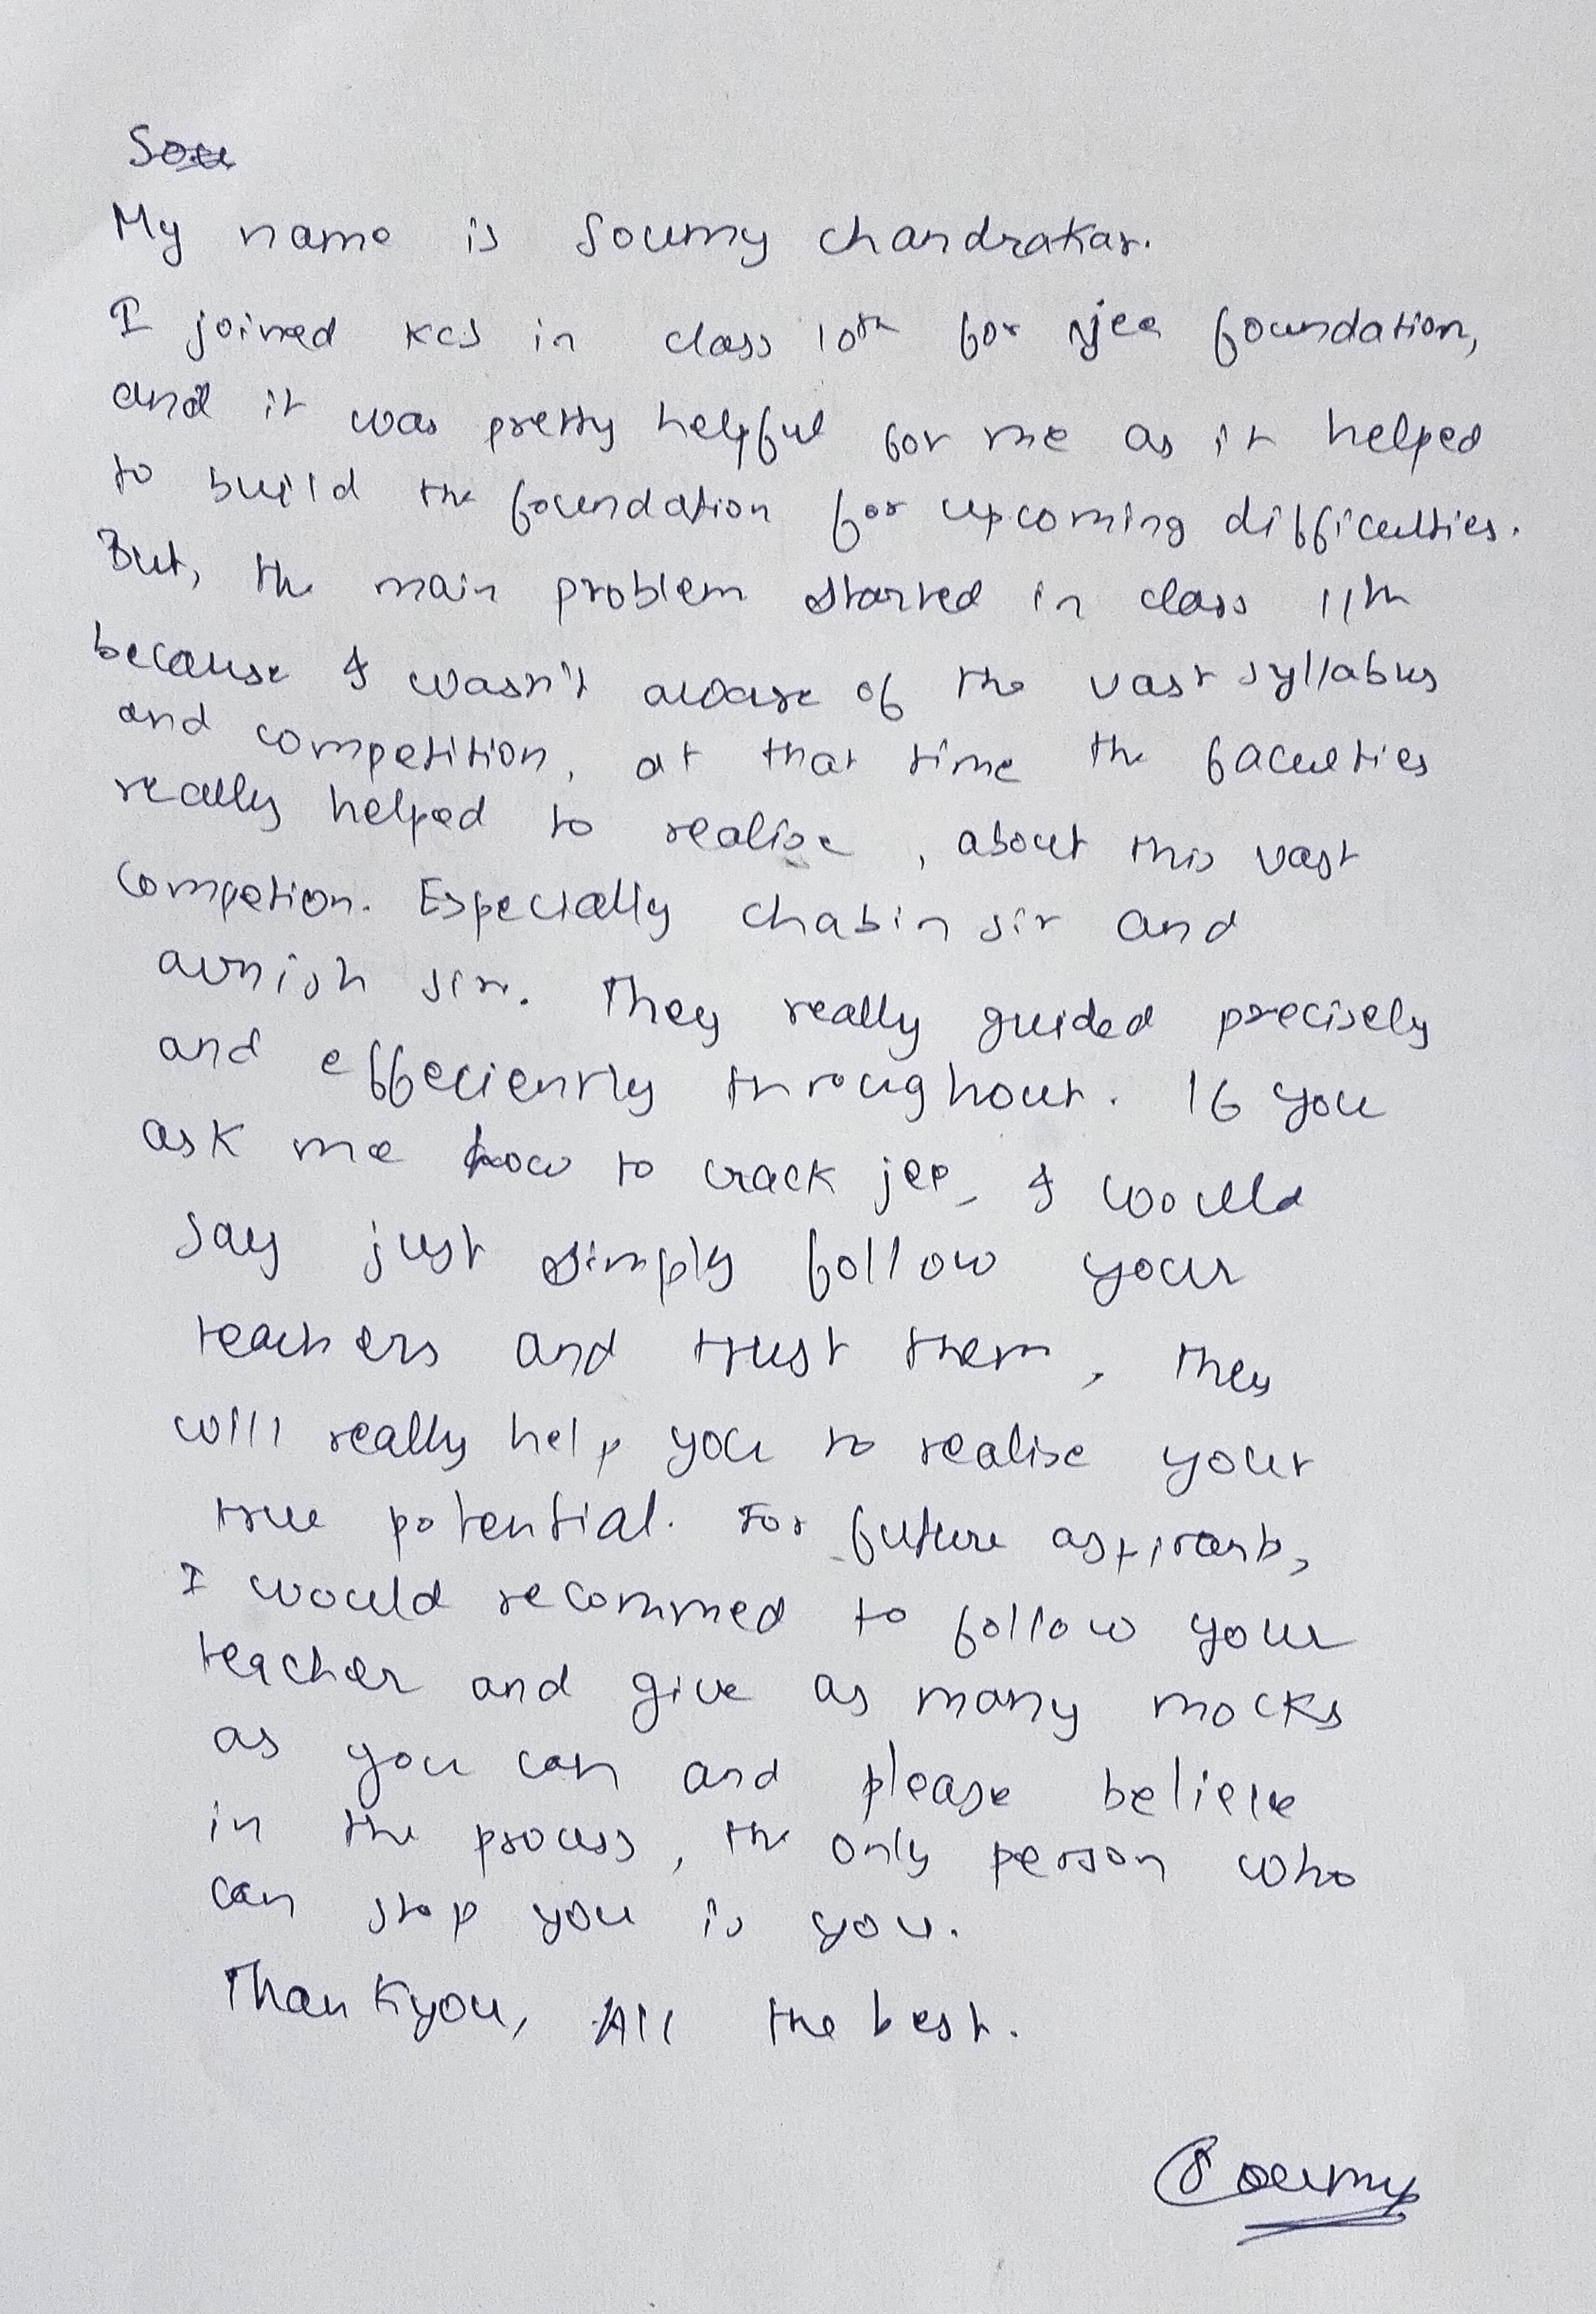 Sou
My name is Soumy chandrakar.
I joined kcs in class 10th for jee foundation,
and it was pretty helpful for me as it helped
to build the foundation for upcoming difficulties.
But, the main problem started in class 11th
because I wasn't aware of the vast syllabus
and competition, at that time the faculties
really helped to realise, about this vast
competion. Especially chabin sir and
avnish sir. They really guided precisely
and effeciently throughout. If you
ask me how to crack jee, I would
say just simply follow your
teachers and trust them, they
will really help you to realise your
true potential. For future aspirants,
I would recommed to follow your
teacher and give as many mocks
as you can and please believe
in the process, the only person who
can stop you is you.
Thankyou, All the best.
Soumy